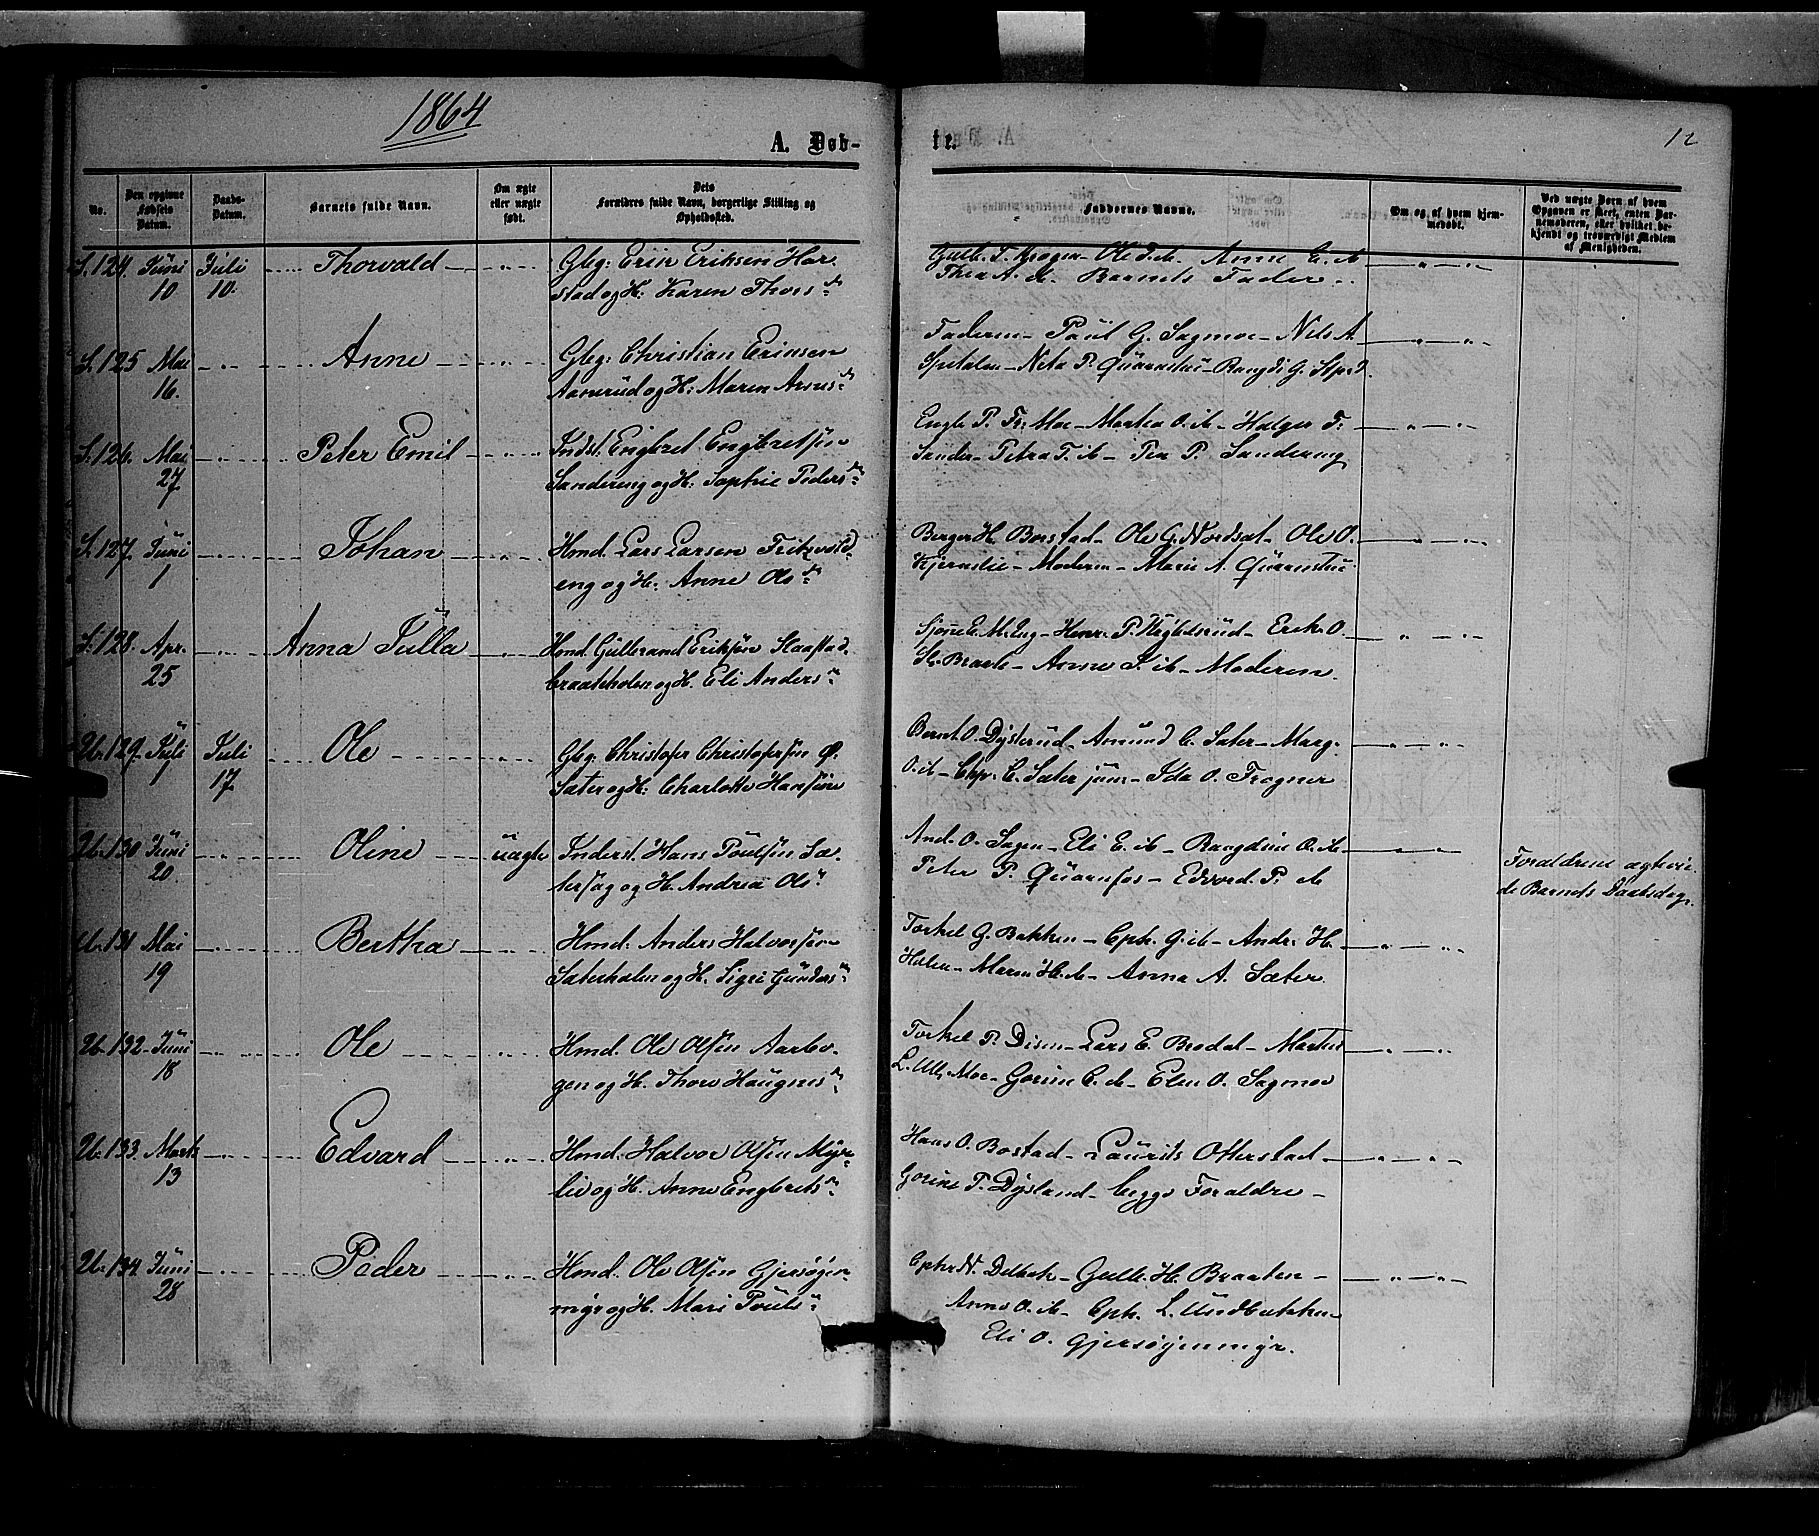 1864
A. Døb-
te.
12
No.
Den opgivne Fødsels Datum.
Daabs-Datum.
Barnets fulde Navn.
Om ægte eller uægte født.
Dets Forældres fulde Navn, borgerlige Stilling og Opholdssted.
Faddernes Navne.
Om og af hvem hjemmedøbt.
Ved uægte Børn af hvem Opgaven er skeet, enten Barnemoderen, eller hvilket bekjendt og troværdigt Medlem af Menigheden.
S. 124. Juni Juli Thorvald Gbg: Erik Eriksen Har
10 10. stad og H: Karen Thors
Gulb. T. Krogen - Ole d. ib. Anne E. ib
Thea A. ib. Barnets Fader
S. 125 Mai Anne Gbg: Christian Eriksen
16. og H: Maren
Faderen - Paul G. Sagmoe - Nils A.
Spitalen - P. Quærnstue - Rangdi G.
S. 126. Mai Peter Emil Indst. Engbret Engbretsen
27. Sandereng og H: Sophie Peders
Engb. P. Fr: Moe - Marthea O. ib - Holger F.
Sander - Petra T. ib - Pea P. Sandereng
S. 127. Juni Johan Hmd. Lars Larsen
1 eng og H. Anne Ols
Berger H. Borstad - Ole G. Nordsæt - Ole O.
Kjernslie - Moderen - Marie A. Quærnstue
S. 128. Apr. Anna Julla Hmd. Gulbrand Eriksen Haastad
25 braateholen og H. Eli Anders
Eng - P. - Erik O.
Braate - Anne ib - Moderen.
Ub. 129. Juli Juli Ole Gbg. Christofer Christofersen Ø.
1 17. Sæter og H: Charlotte Hansine
Bernt O. Dysterud - Amund C. Sæter - Marg.
O. ib - Chr. C. Sæter jun - Ida O. Frogner
Ub. 130 Juni Oline uægte Inderst. Hans Poulsen Sæ-
20. tersag og H. Andrea Ols
And. O. Sagen - Eli E. ib - Rangdine O. ib
Peter P. Quærnfos - Edvard P. ib
Forældrene ægtevie
de Barnets Daabsdag.
Ub. 131 Mai Bertha Hmd: Anders Halvorsen
19 Sæterholen og H. Sigri Gunders
Torkel G. Bakken - Cph. G. ib - Andr: H.
Holen - Maren H. ib - Anna A. Sæter.
Ub. 132. Juni Ole Hmd. Ole Olsen Aarbo-
18 gen og H. Thore Haugens
Torkel P. Disen - Lars E. Brodal - Martin
L. Ull. Moe - Gorine C. ib - Elen O. Sagmoe
Ub. 133. Marts Edvard Hmd. Halvor Olsen Myr-
13 lie og H. Anne Engbrets
Hans O. Bostad - Laurits Otterstad
Gorine T. Dysland - begge Forældre -
Ub. 134. Juni Peder Hmd. Ole Olsen Gjersøgen-
28 myr og H. Mari Pouls
Cph. N. Delbek - Gulb. H. Braaten -
Anne O. ib - Cph. L. Lundbakken
Eli O. Gjersøyenmyr.